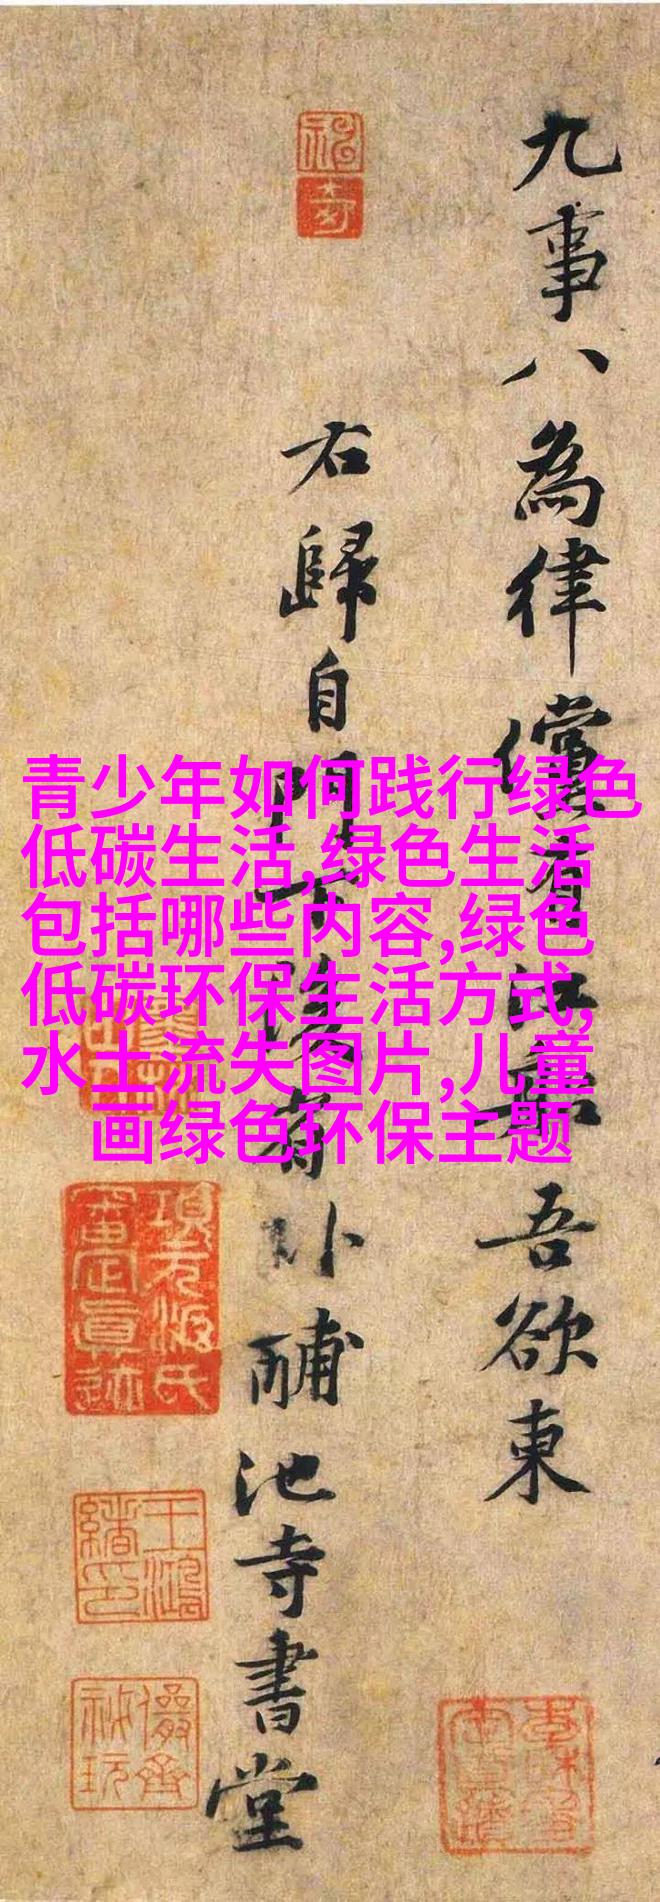 九事八為律儻有江船吾欲東
右歸自門下後省卧酺池寺書堂
青少年如何践行绿色
低碳生活,绿色生活
包括哪些内容,绿色
低碳环保生活方式,
水土流失图片,儿童
画绿色环保主题
項元汴氏
審定真迹